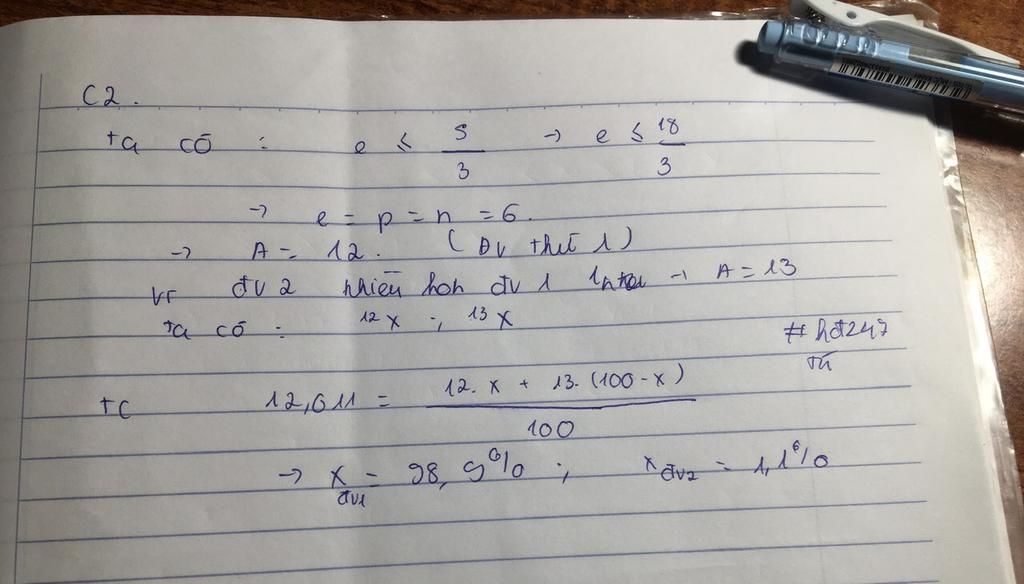 C2.
ta có : e ≤ S/3 → e ≤ 18/3
→ e = p = n = 6.
→ A = 12. (ĐV thứ 1)
Vì đv 2 nhiều hơn đv 1 1 → A = 13
ta có : ¹²X ; ¹³X
#hđ247
Tú
tc 12,011 = (12.x + 13.(100-x))/100
→ x đv1 = 98,9% ; x đv2 = 1,1%